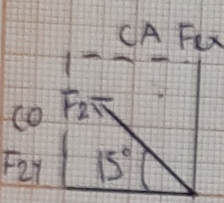 CA F2x
CO F2
F2y 15°